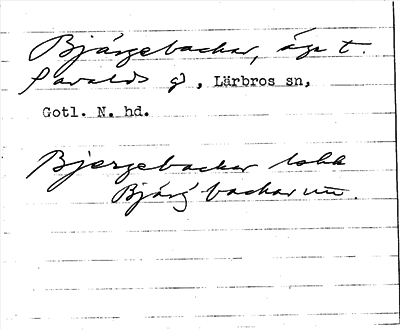 Bjärgebackar, äga t.
Pavalds gd, Lärbros sn,
Gotl. N. hd.
Bjergebackar lokk
Bjärg backar um.